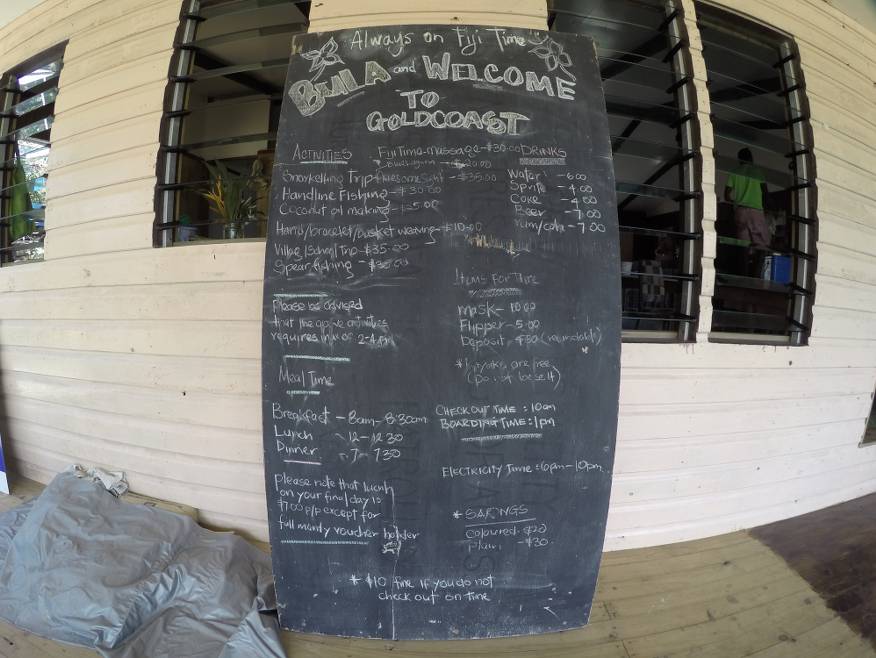 Always on Fiji Time
BULA and WELCOME
TO
GOLDCOAST
ACTIVITIES
Fiji Time massage - $30.00
$20.00
Snorkelling Trip - $35.00
Handline Fishing - $30.00
Coconut oil making - $5.00
Hand/bracelet/basket weaving - $10.00
Village/School Trip - $35.00
Spear fishing - $30.00
Please be advised
that the above activities
requires min of 2-4
Meal Time
Breakfast - 8am - 8:30am
Lunch - 12 - 12.30
Dinner - 7 - 7.30
Please note that lucnh
on your final day is
$7.00 p/p except for
full mandy voucher holder
DRINKS
Water - 6.00
Sprite - 4.00
Coke - 4.00
Beer - 7.00
Rum/cola - 7.00
Items For Hire
Mask - 10.00
Flipper - 5.00
Deposit - $50 (refundable)
are free
CHECK OUT TIME : 10am
BOARDING TIME : 1pm
ELECTRICITY TIME : 6pm - 10pm
* SARONGS
coloured - $20
Plain - $30
* $10 fine if you do not
check out on time